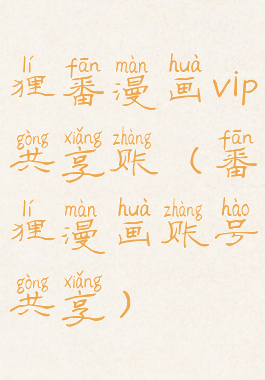 lí fān màn huà
狸番漫画vip
gòng xiǎng zhàng fān
共享账（番
lí màn huà zhàng hào
狸漫画账号
gòng xiǎng
共享）